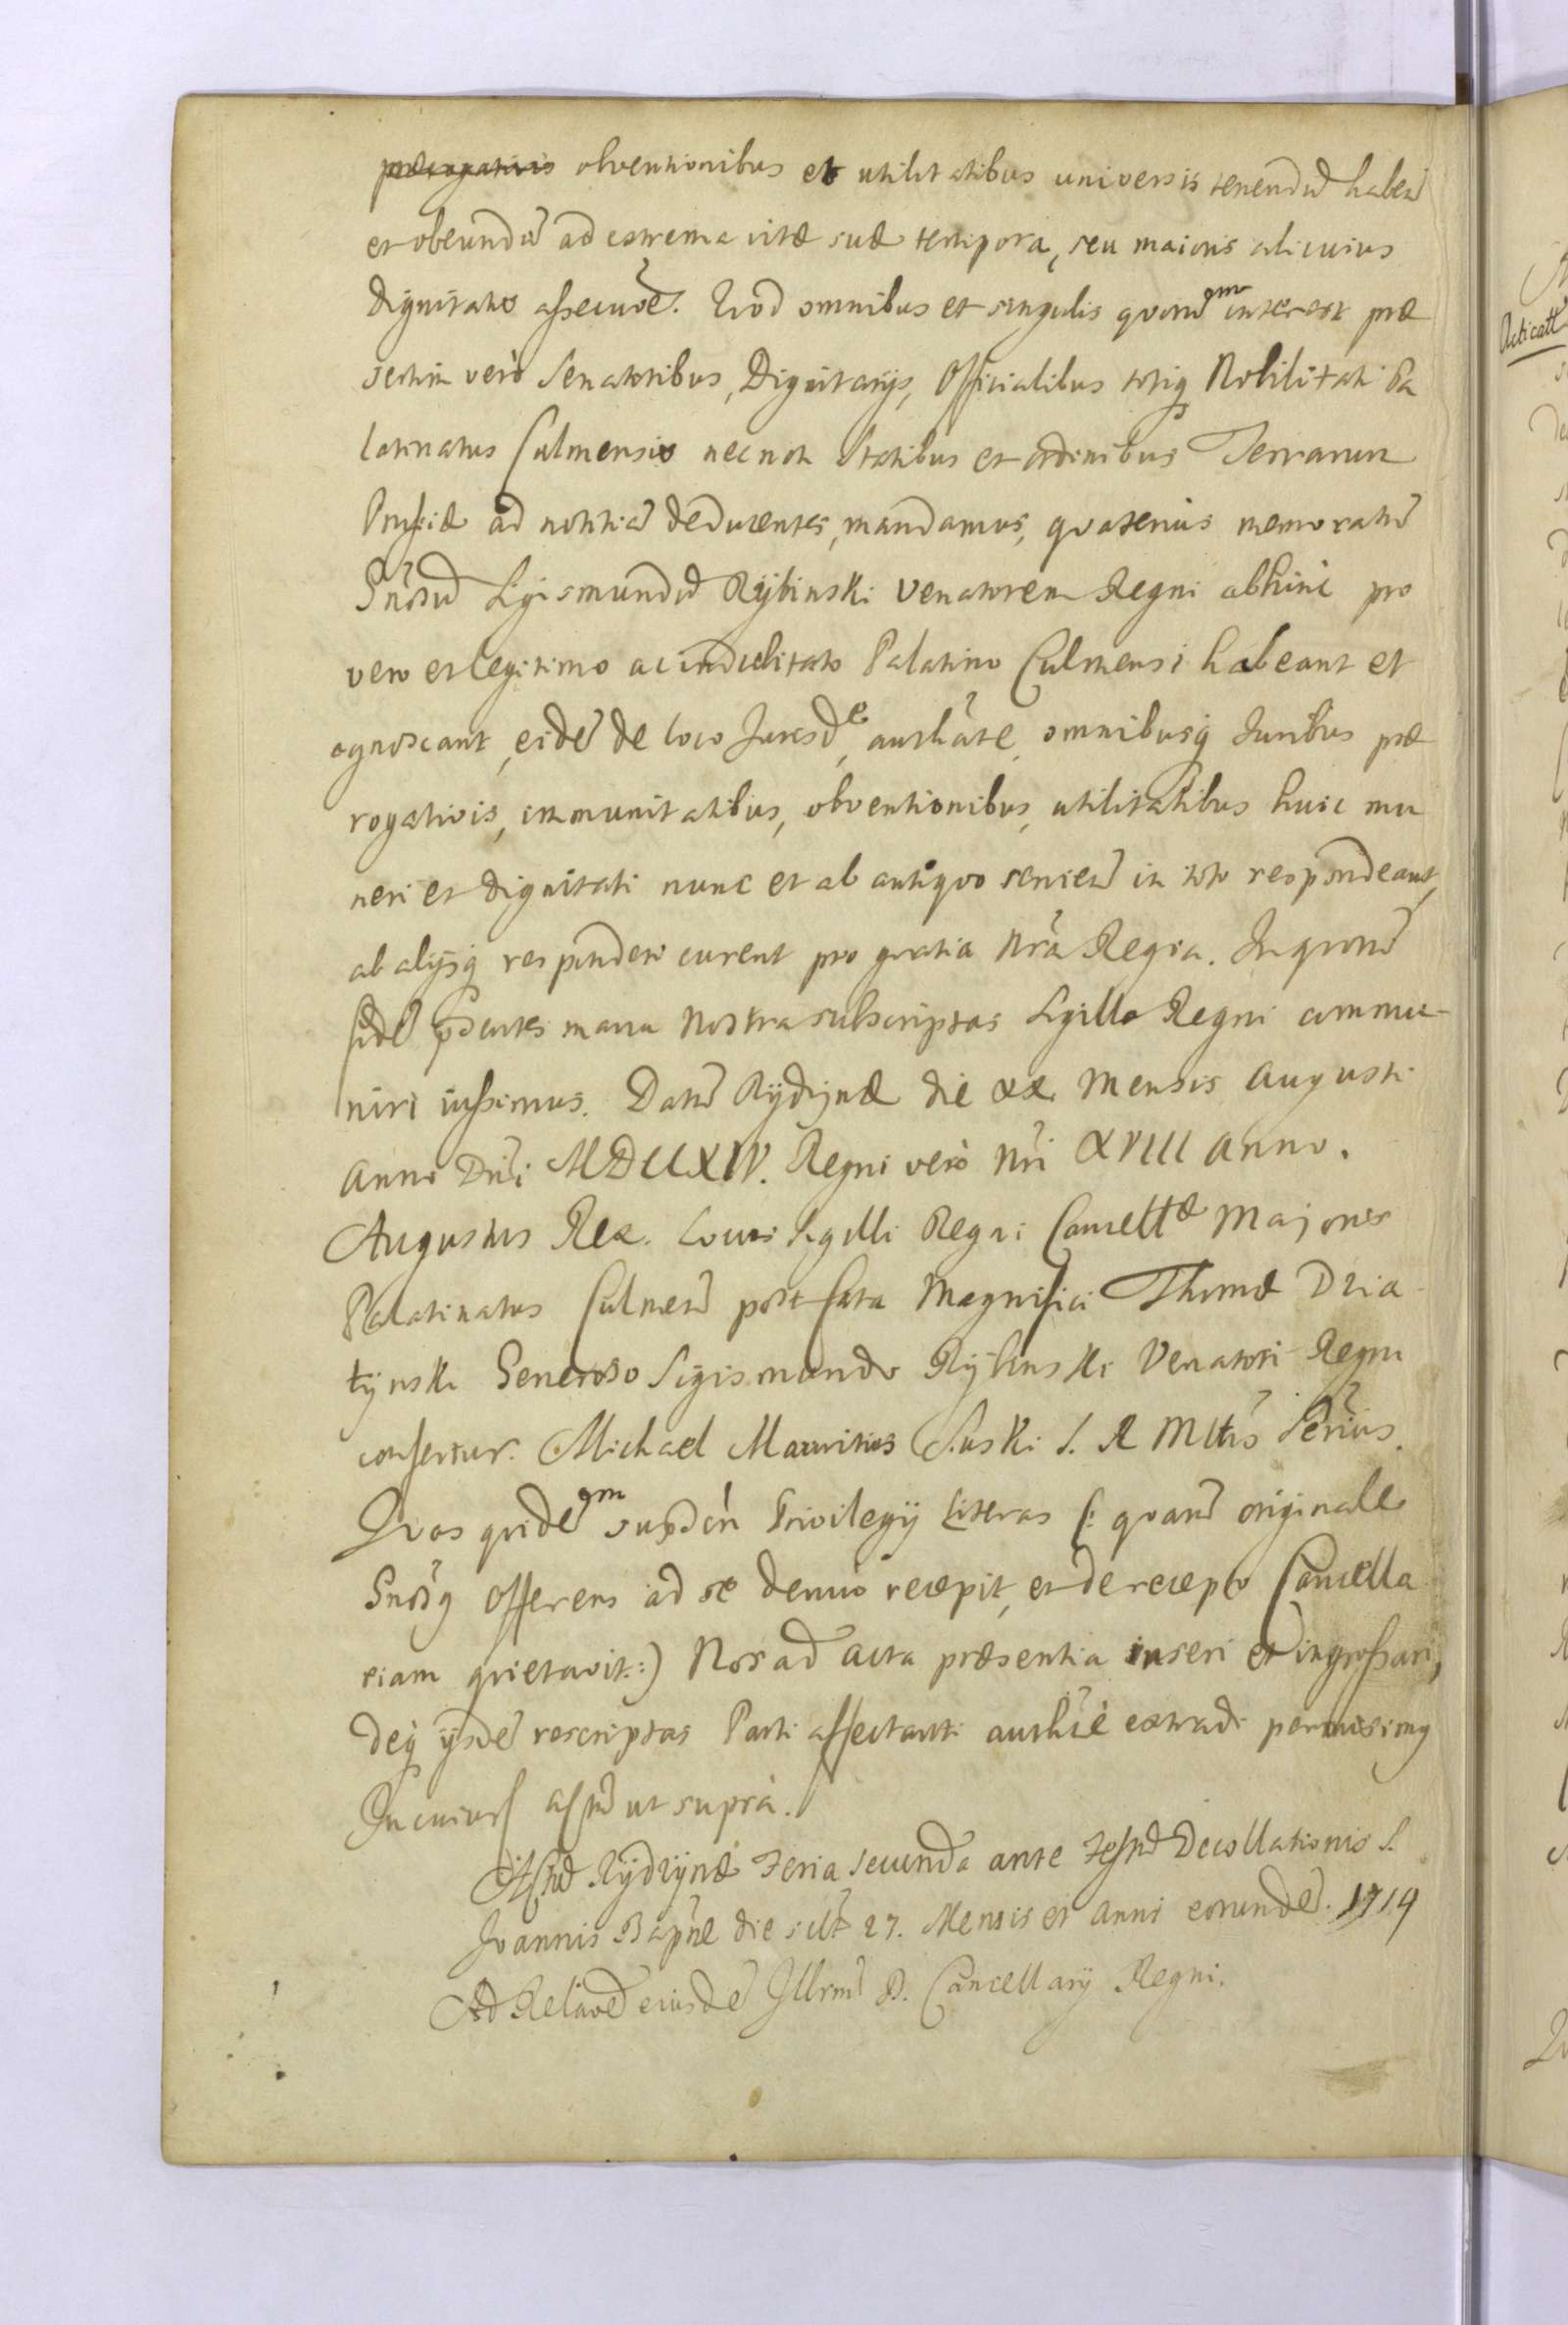 praerogativis obventionibus et utilitatibus universis tenendũ habeñ
et obeundũ ad extrema vitæ suæ tempora, seu maioris alicuius
dignitatis assecuõẽ. Quod omnibus et singulis quorũ interest præ
sertim verò Senatoribus, Dignitarijs, Officialibus totiq Nobilitati Pa
latinatus Culmensis necnon Statibus et ordinibus Terrarum
Prussiæ ad notitiã deducentes, mandamus, quatenus memoratũ
Gñosũ Sigismundũ Rybinski Venatorem Regni abhinc pro
vero et legitimo ac indubitato Palatino Culmensi habeant et
agnoscant, eidẽ de loco Juresdᵉ, authãte, omnibusq Juribus præ
rogativis, immunitatibus, obventionibus, utilitatibus huic mu
neri et dignitati nunc et ab antiquo servieñ in toto respondeant,
ab alijsq responderi curent pro gratia Nrã Regia. In quorũ
fidẽ pñtes manu Nostra subscriptas Sigillo Regni commu-
niri iussimus. Datũ Rydzynæ die xx Mensis Augusti
Anno Dñi MDCCXIV. Regni verò Nri XVIII anno.
Augustus Rex. Locus Sigilli Regni Cancellᵃᵉ Majoris
Palatinatus Culmeñ post fata Magnifici Thomæ Dzia
łynski Generoso Sigismundo Rybinski Venatori Regni
confertur. Michael Mauritius Suski S. R Mttis Sẽrius.
Quas quidẽ supõn Privilegij Literas (: quarũ originale
Gnõsq Offerens ad se denuo recepit, et de recepto Cancella
riam quietavit:) Nos ad Acta præsentia inseri et ingrossari,
deq ijsdẽ rescriptas Parti affectanti authcè extradi permisimq
In cuius Actũ ut suprà.
Actũ Rydzynæ Feria secunda ante Festũ Decollationis S.
Joannis Bapñe die sclt 27. Mensis et anni eorundẽ. 1714
Ad Relãoẽ eiusdẽ Illrmi D. Cancellarij Regni.